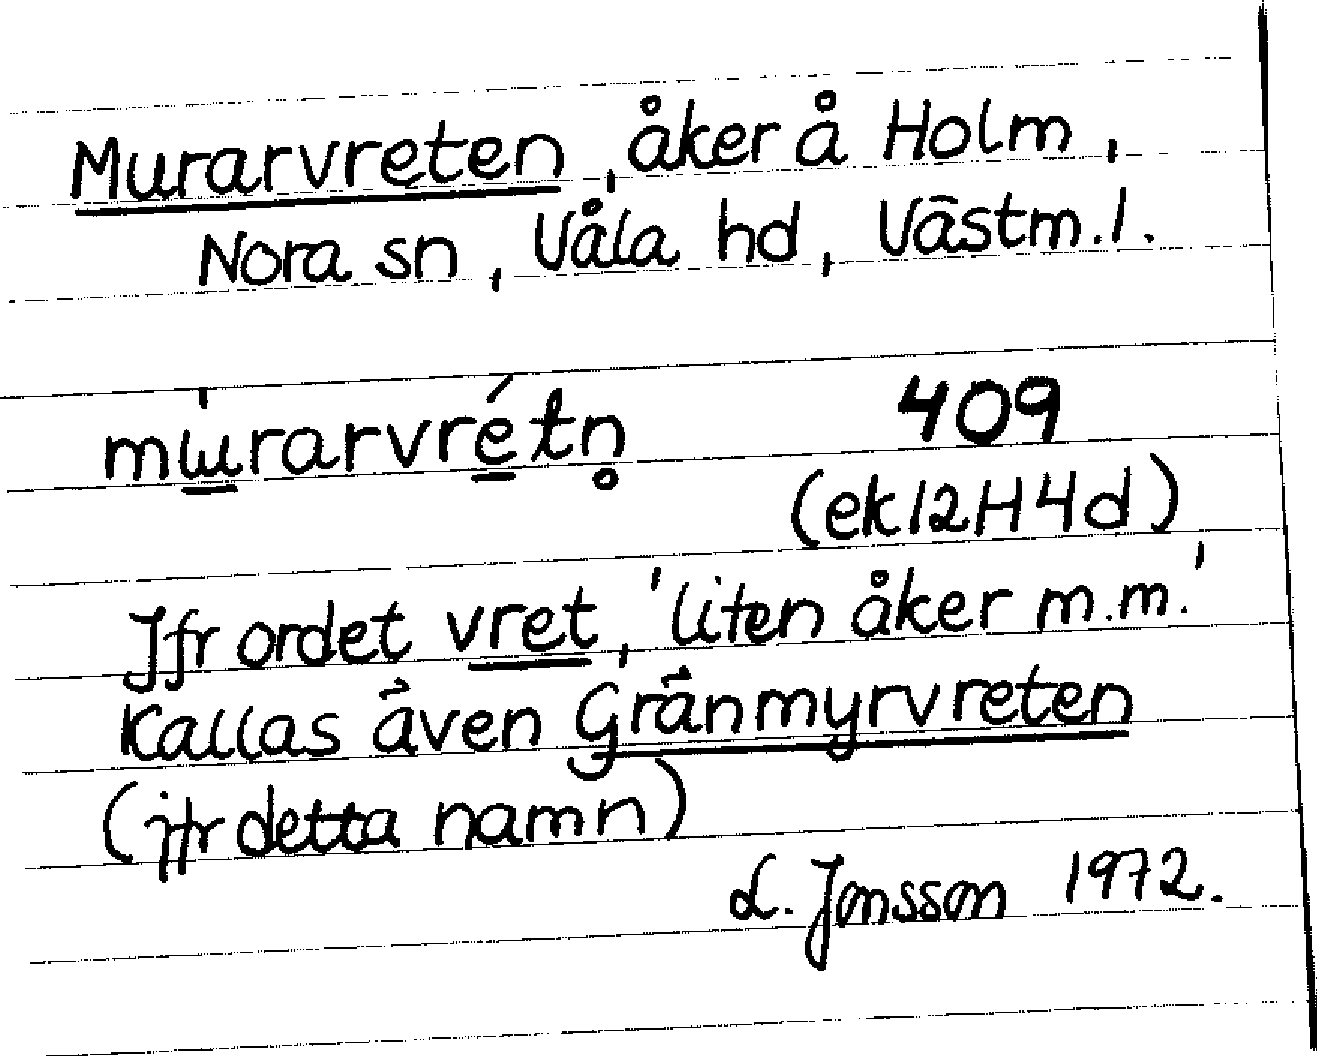 Murarvreten, åker å Holm,
Nora sn, Våla hd, Västm. l.
mu̲̍rarvré̲tn̥ 409
(ek 12H4d)
Jfr ordet vret, 'liten åker m.m.'
Kallas även Gränmyrvreten
(jfr detta namn)
L. Jonsson 1972.